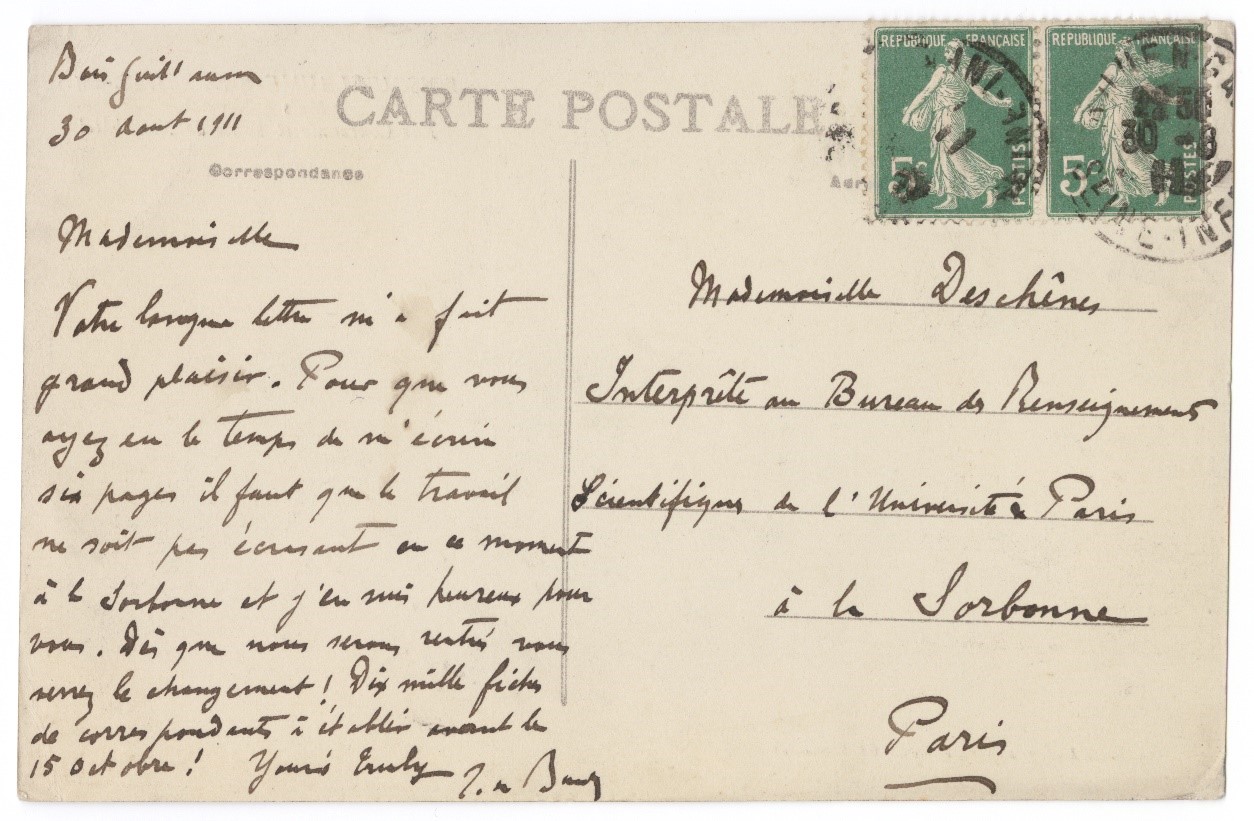 Bois Guill'aume
30 Aout 1911
CARTE POSTALE
Correspondance
Mademoiselle
Votre longue lettre m'a fait
grand plaisir. Pour que vous
ayez eu le temps de m'écrire
six pages il faut que le travail
ne soit pas écrasant en ce moment
à la Sorbonne et j'en suis heureux pour
vous. Dès que nous serons rentrés vous
verrez le changement! Dix mille fiches
de correspondants à établir avant le
15 Octobre! Yours Truly
REPUBLIQUE FRANÇAISE
5
POSTES
REPUBLIQUE FRANÇAISE
5
POSTES
30 -8
SEINE-INF
Mademoiselle Deschênes
Interprête au Bureau des Renseignements
Scientifiques de l'Université de Paris
à la Sorbonne
Paris